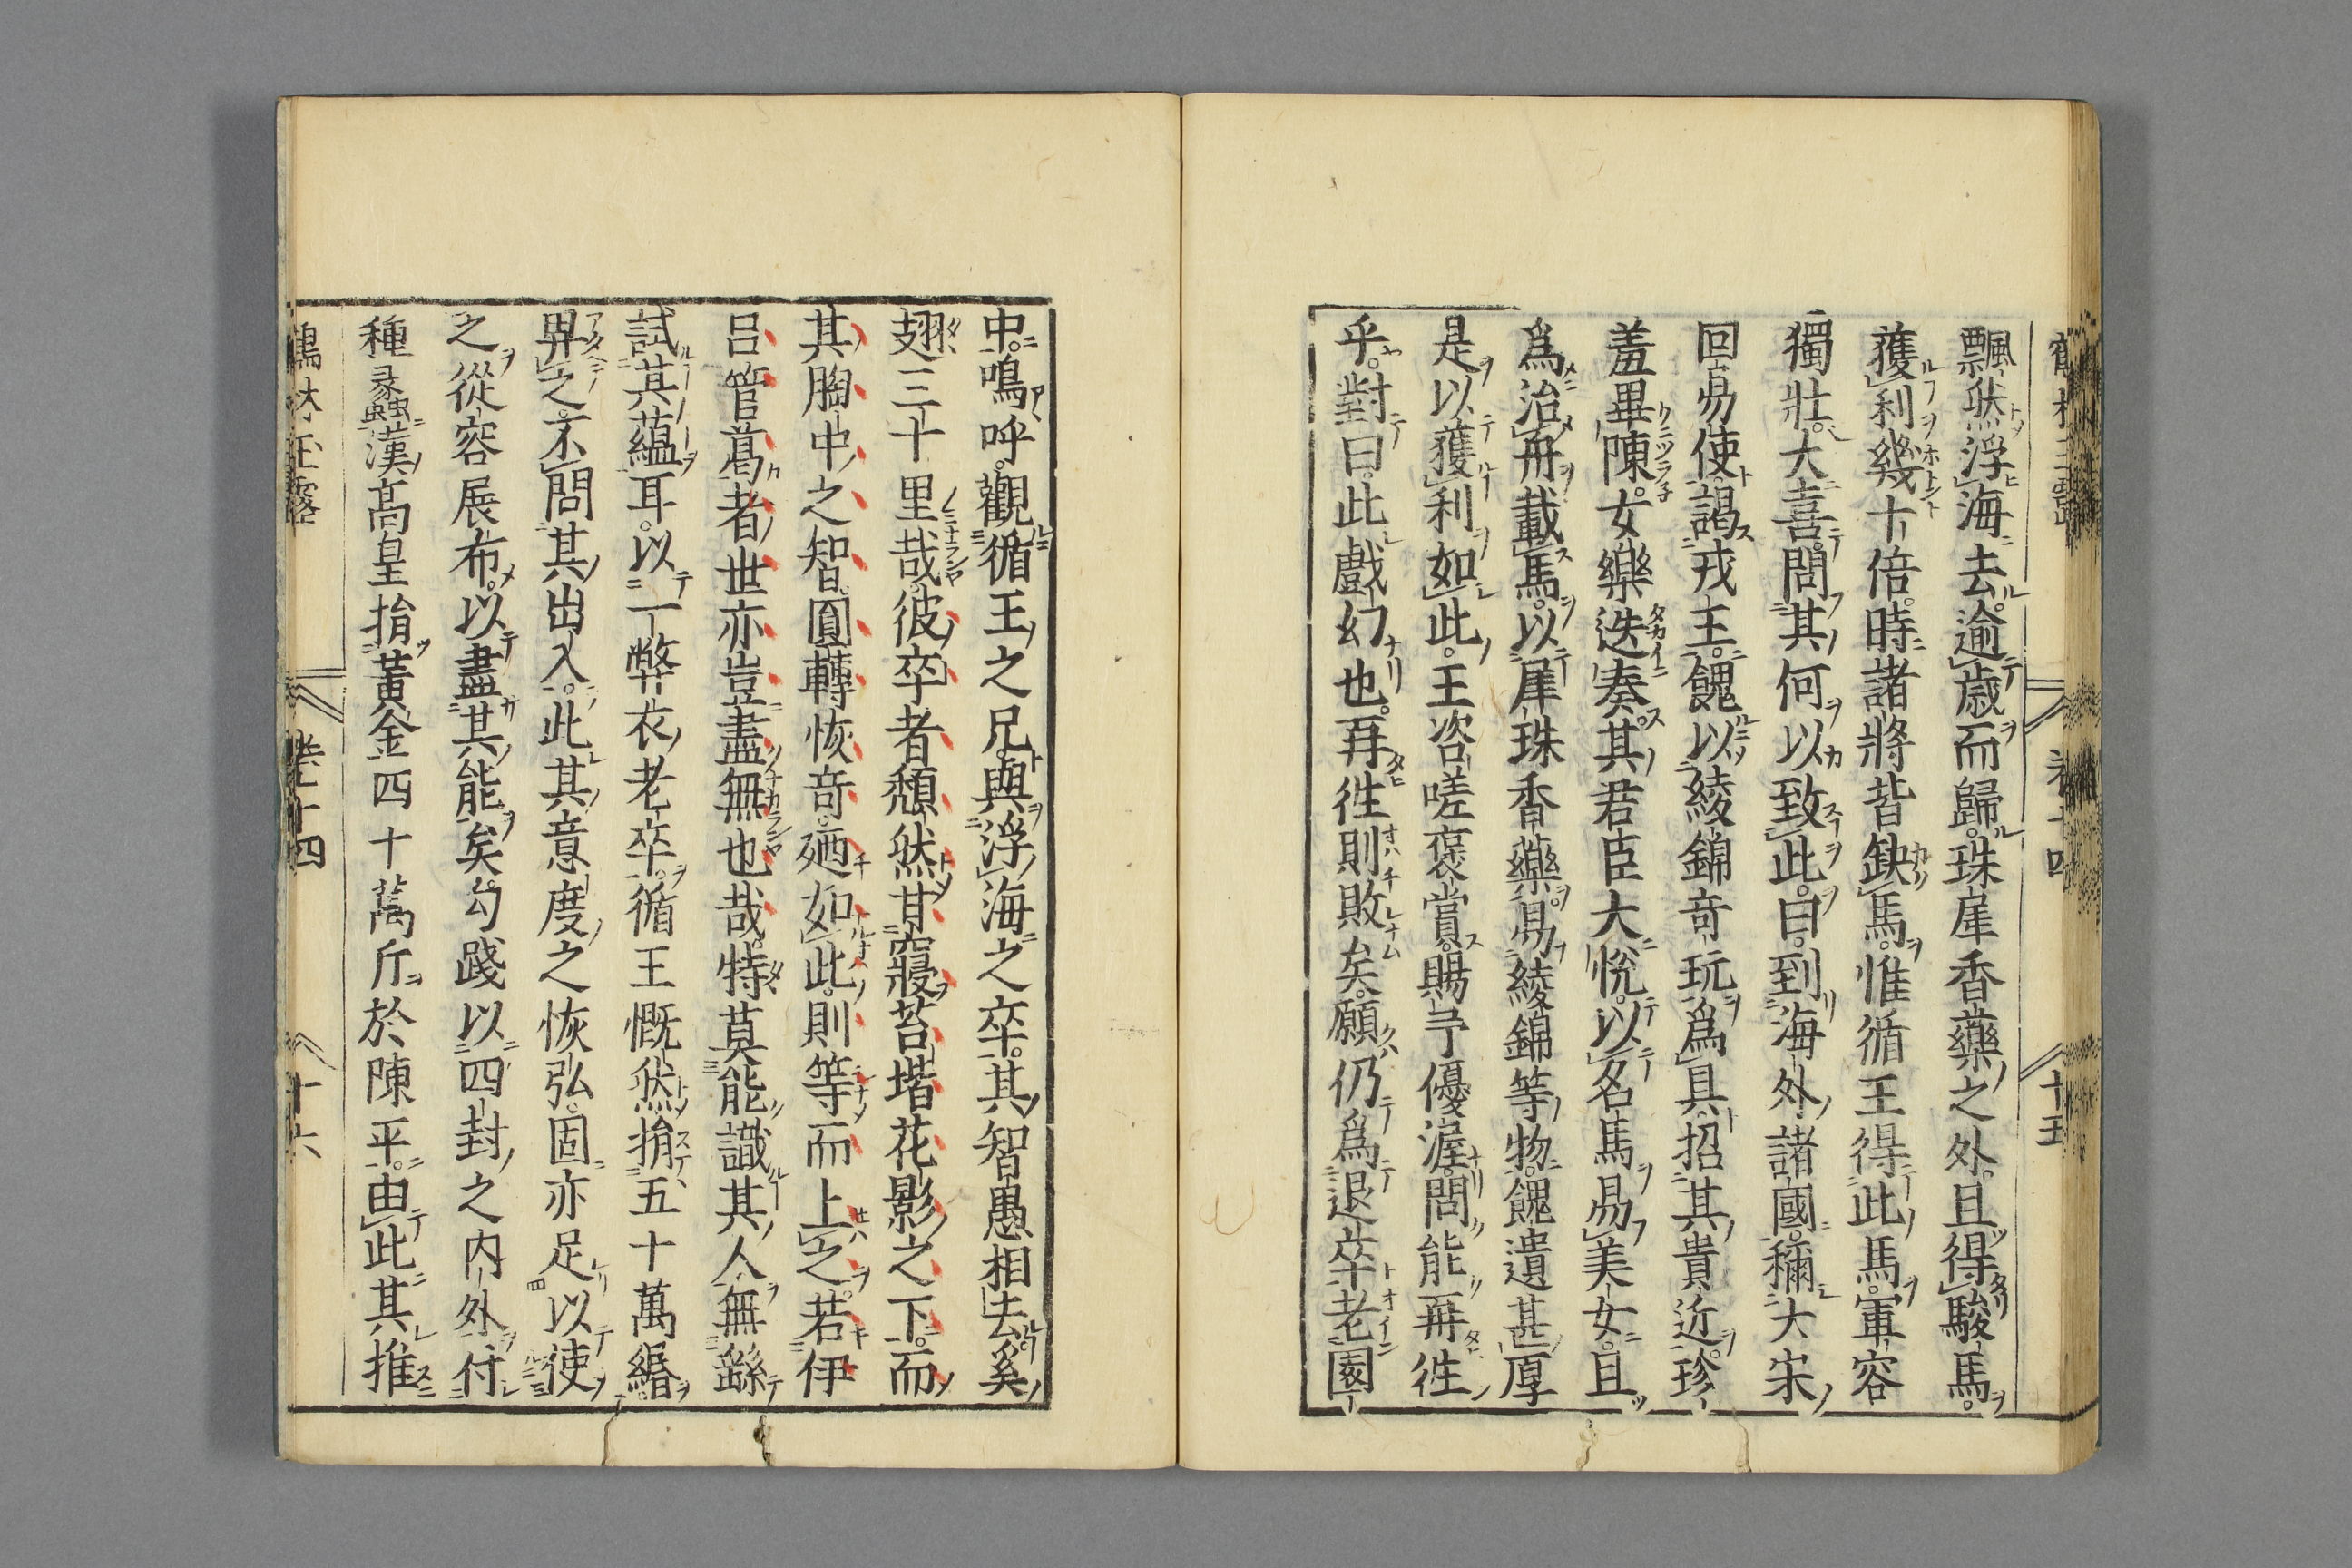 飄然浮海去逾歳而歸珠犀香藥之外且得駿馬
獲利幾十倍時諸將皆缺馬惟循王得此馬軍容
獨壯大喜問其何以致此曰到海外諸國稱大宋
回易使謁戎王餽以綾錦奇玩爲具招其貴近珍
羞畢陳女樂迭奏其君臣大悅以名馬易美女且
爲治舟載馬以犀珠香藥易綾錦等物餽遺甚厚
是以獲利如此王咨嗟褒賞賜予優渥問能再徃
乎對曰此戲幻也再徃則敗矣願仍爲退卒老園
中嗚呼觀循王之兄與浮海之卒其智愚相去奚
翅三十里哉彼卒者頽然甘寢苔堦花影之下而
其胸中之智圓轉恢奇廼如此則等而上之若伊
呂管葛者世亦豈盡無也哉特莫能識其人無繇
試其蘊耳以一弊衣老卒循王慨然捐五十萬緡
畀之不問其出入此其意度之恢弘固亦足以使
之從容展布以盡其能矣勾踐以四封之内外付
種蠡漢高皇捐黃金四十萬斤於陳平由此其推
鶴林玉露 卷十四 十六